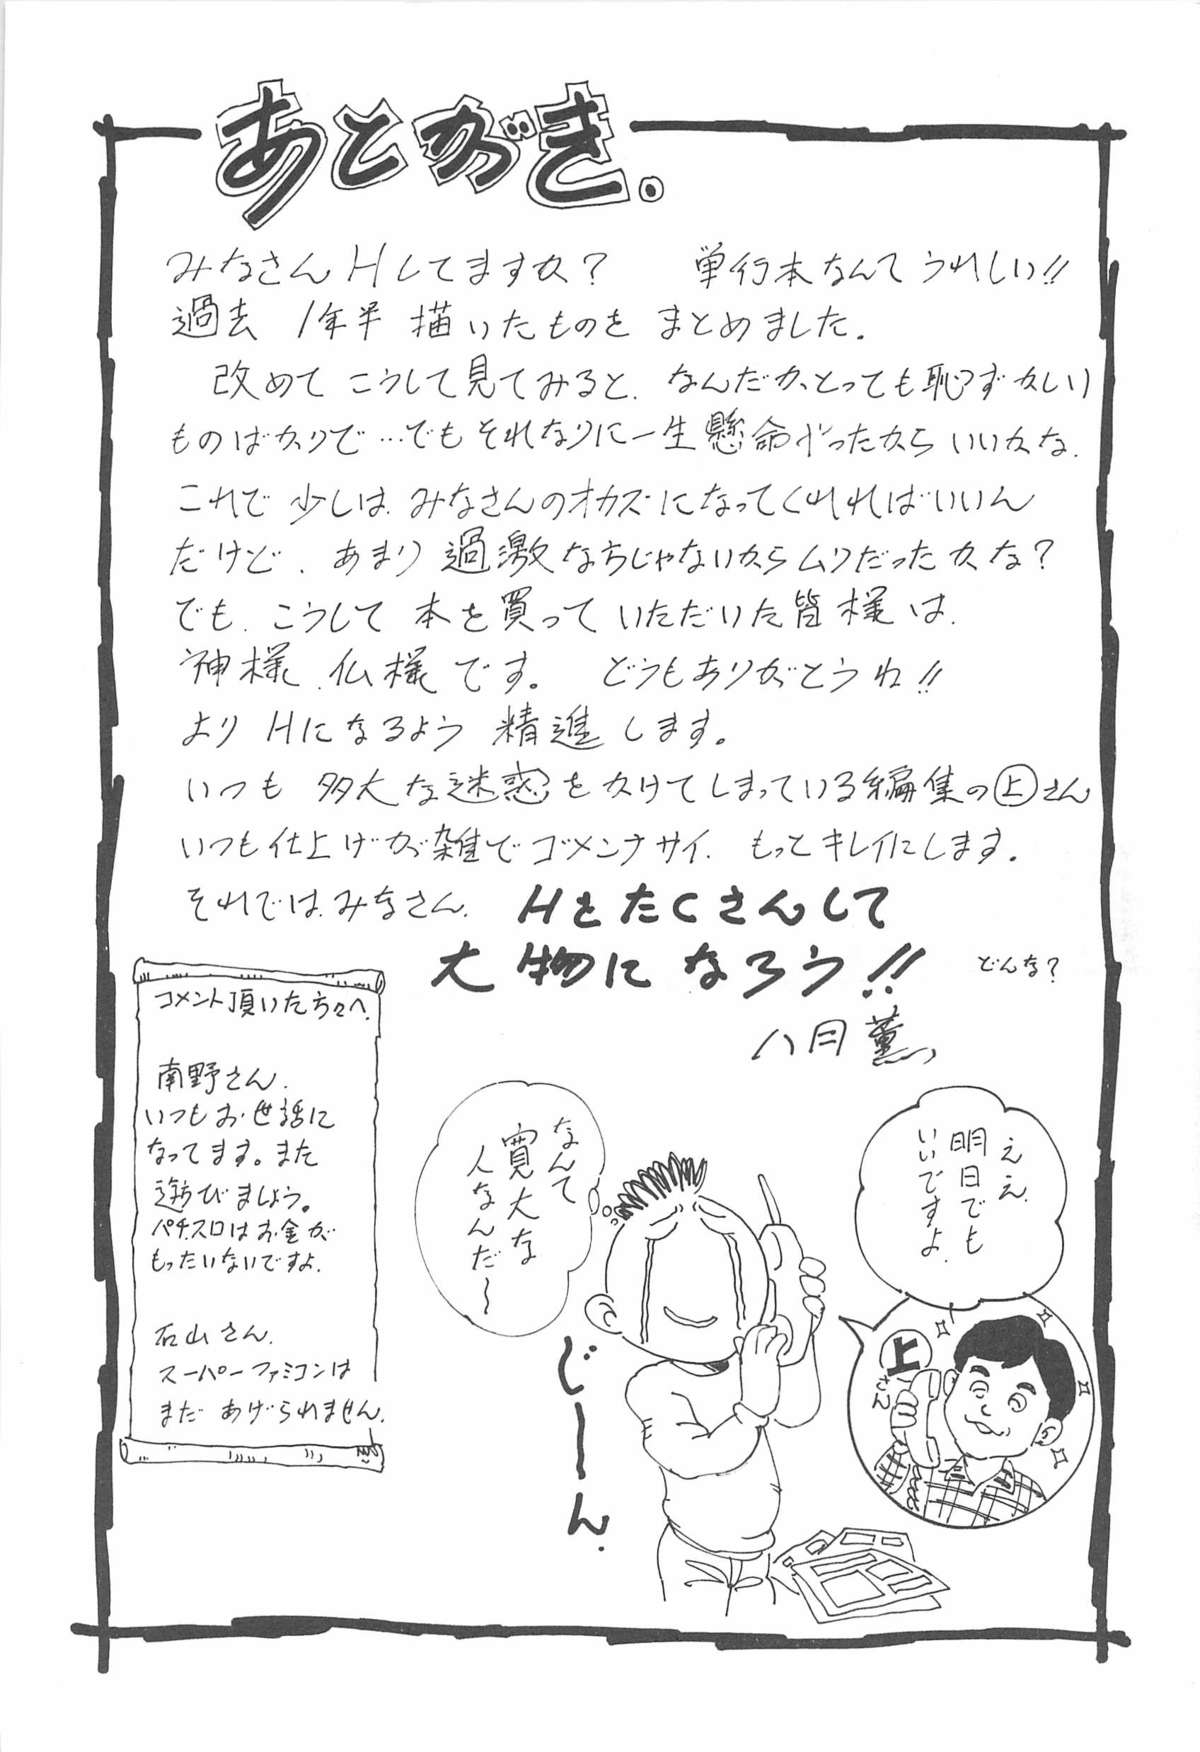 あとがき.
みなさんHしてますか? 単行本なんてうれしい!!
過去 1年半 描いたものを まとめました.
改めて こうして見てみると、なんだか、とっても恥ずかしい
ものばかりで…でもそれなりに一生懸命やったからいいかな.
これで 少しは、みなさんのオカズになってくれればいいん
だけど、あまり過激な方じゃないからムリだったかな?
でも、こうして 本を買っていただいた皆様は、
神様、仏様です。 どうもありがとうね!!
より Hになるよう 精進します。
いつも 多大な迷惑をかけてしまっている編集の㊤さん
いつも仕上げが雑でゴメンナサイ. もっとキレイにします.
それでは、みなさん、Hをたくさんして
大物になろう!! どんな?
八月薫
コメント頂いた方々へ.
南野さん.
いつもお世話に
なってます。また
遊びましょう。
パチスロはお金が
もったいないですよ.
石山さん.
スーパーファミコンは
まだあげられません.
ええ、
明日でも
いいですよ.
㊤さん
なんて
寛大な
人なんだ〜
じーーん.